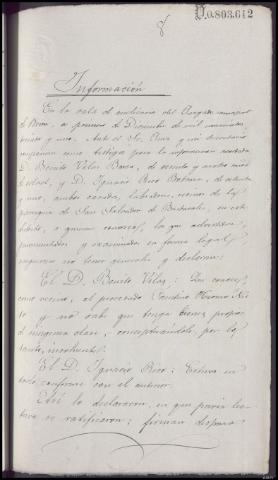 8
D.0.803.612
Información
En la sala de audiencia del Juzgado municipal
de a primero de Diciembre de mil novecientos
treinta y uno. Ante el Sr. Juez y mi Secretario
comparecen como testigos para la información acordada
D. Benito Vilas de sesenta y cuatro años
de edad, y D. Ignacio Rico de
y uno, ambos casados, labradores, vecinos de la
parroquia de San Salvador de en este
distrito, a quienes conozco, los que advertidos,
juramentados y examinados en forma legal
no tener generales y declaran:
El D. Benito Vilas: Que conoce,
como vecino, al procesado
y no sabe que tenga bienes propios
de ninguna clase, conceptuándole, por lo
tanto, insolvente.
El D. Ignacio Rico: Estuvo en
todo conforme con el anterior.
Así lo declararon, en que previa lec-
tura se ratificaron; firman después